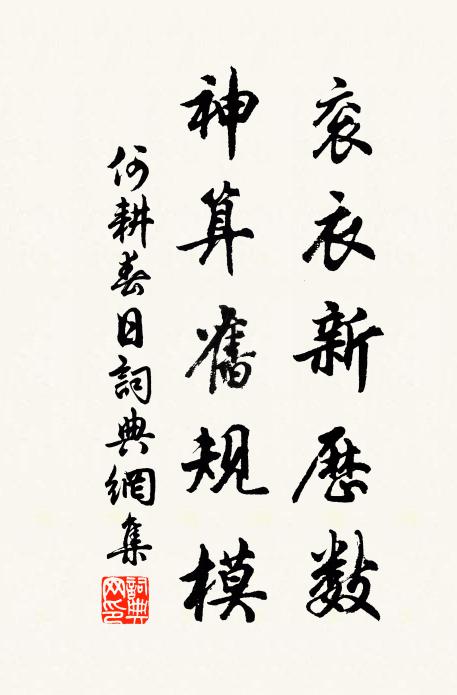 衮衣新歷數
神算舊規模
何耕春日詞典網集
詞典网印